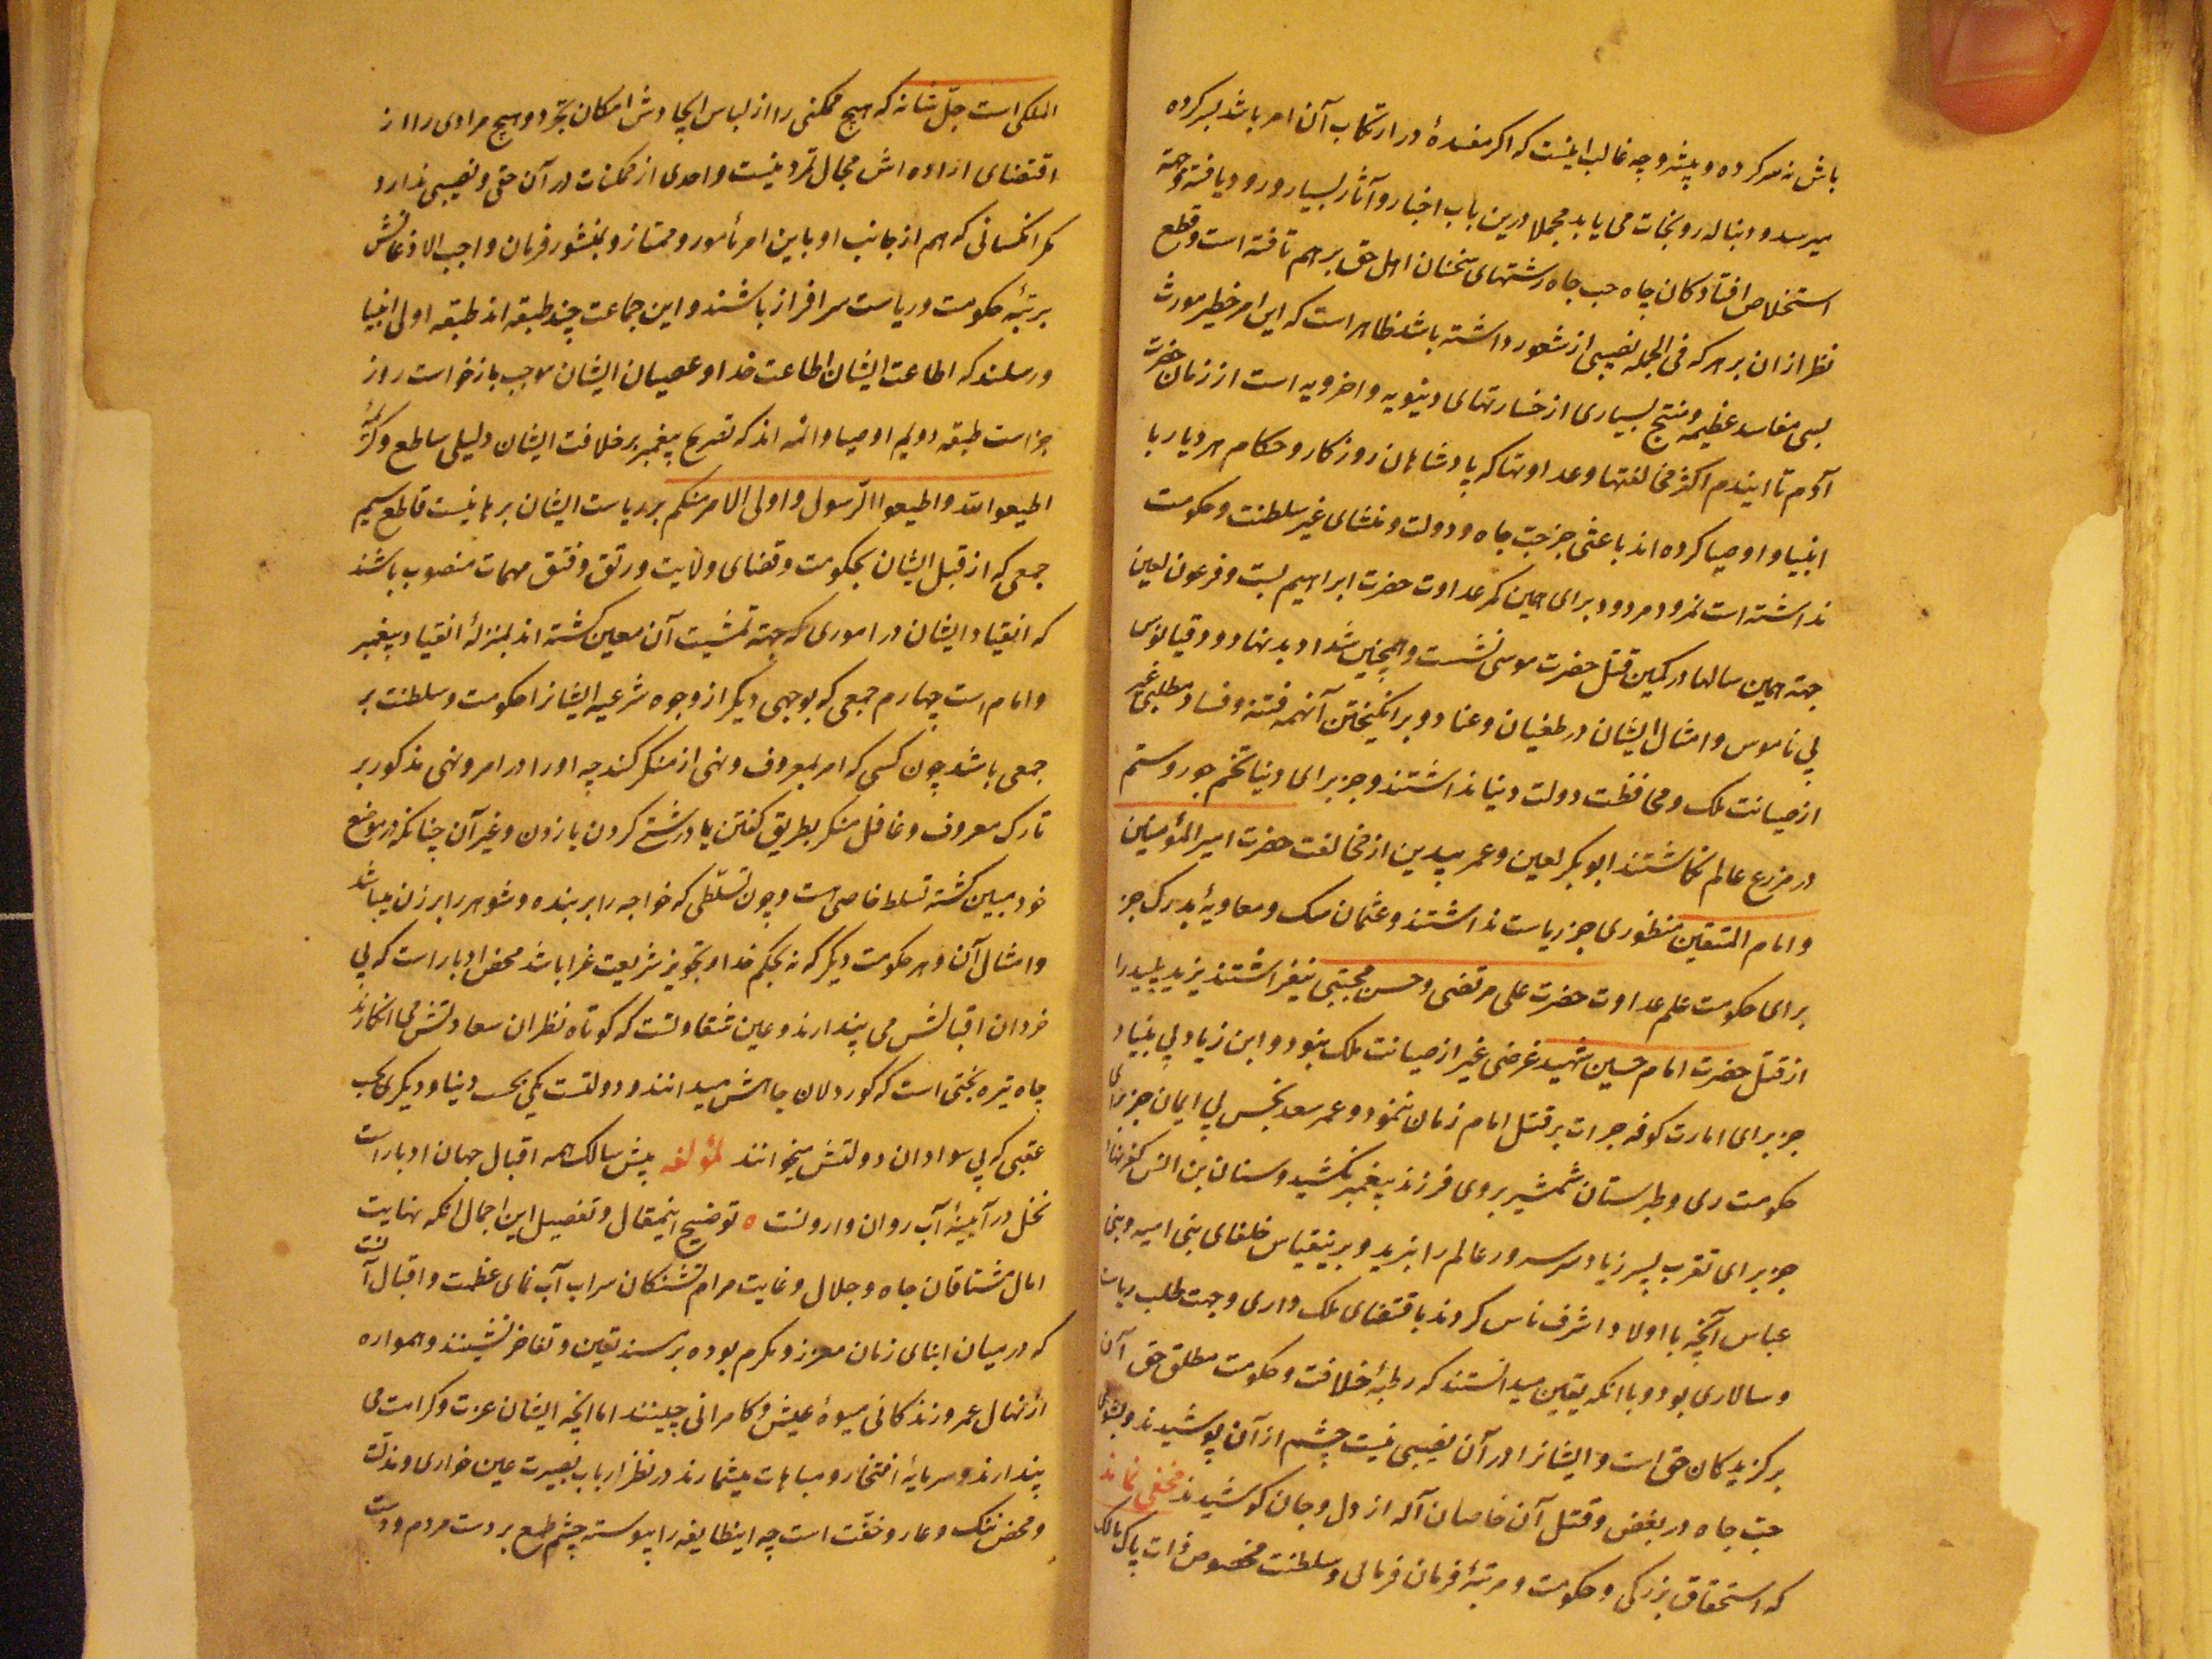 باش نه سر کرده و پیشرو چه غالب اینست که اکر مفسدهٔ در ارتکاب آن امر باشد بسرکرده
میرسد و دنباله رو نجات می یابد مجملا درین باب اخبار و آثار بسیار ورود یافته و جهة
استخلاص افتادکان چاه حب جاه رشتهای سخنان اهل حق بر هم تافته است و قطع
نظر ازان بر هر که فی الجمله نصیبی از شعور داشته باشد ظاهر است که این امر خطیر مورث
بسی مفاسد عظیمه و منتج بسیاری از خسارتهای دنیویه و اخرویه است از زمان حضرت
آدم تا ایندم اکثر مخالفتها و عداوتها که پادشاهان روزکار و حکام هر دیار با
انبیا و اوصیا کرده اند باعثی جز حب جاه و دولت و منشای غیر سلطنت و حکومت
نداشته است نمرود مردود برای همین کمر عداوت حضرت ابراهیم بست و فرعون لعین
جهة همین سالها در کمین قتل حضرت موسی نشست و همچنین شداد بدنهاد و دقیانوس
بی ناموس و امثال ایشان در طغیان و عناد و برانکیختن آنهمه فتنه و فساد مطلبی غیر
از صیانت ملک و محافظت دولت دنیا نداشتند و جز برای دنیا تخم جور و ستم
در مزرع عالم نکاشتند ابوبکر لعین و عمر بیدین از مخالفت حضرت امیر المؤمنین
و امام المتقین منظوری جز ریاست نداشتند و عثمان سک و معاویهٔ بدرک جز
برای حکومت علم عداوت حضرت علی مرتضی و حسن مجتبی نیفراشتند یزید پلید را
از قتل حضرت امام حسین شهید غرضی غیر از صیانت ملک نبود و ابن زیاد بی بنیاد
جز برای امارت کوفه جرات بر قتل امام زمان ننمود و عمر سعد نجس بی ایمان جز برای
حکومت ری و طبرستان شمشیر بروی فرزند پیغمبر نکشید و سنان بن انس کفر نهاد
جز برای تقرب پسر زیاد سر سرور عالم را نبرید و برینقیاس خلفای بنی امیه و بنی
عباس آنچه با اولاد اشرف ناس کردند باقتضای ملک داری و جهت طلب ریاست
و سالاری بود و با انکه یقین میدانستند که رتبهٔ خلافت و حکومت مطلق حق آن
برکزیدکان حق است و ایشانرا در آن نصیبی نیست چشم از آن پوشیدند و بشومی
حب جاه در بغض و قتل آن خاصان آله از دل و جان کوشیدند مخفی نماند
که استحقاق بزرکی و حکومت و مرتبهٔ فرمان فرمائی و سلطنت مخصوص ذات پاک مالک
الملکی است جل شانه که هیچ ممکنی را از لباس ایجادش امکان تجرد و هیچ مرادی را از
اقتضای اراده اش مجال تمرد نیست و احدی از ممکنات در آن حقی و نصیبی ندارد
مکر انکسانی که هم از جانب او باین امر مأمور و ممتاز و بمنشور فرمان واجب الاذعانش
برتبهٔ حکومت و ریاست سرافراز باشند و این جماعت چند طبقه اند طبقه اولی انبیا
و رسلند که اطاعت ایشان اطاعت خدا و عصیان ایشان موجب بازخواست روز
جزاست طبقه دویم اوصیا و ائمه اند که تصریح پیغمبر بر خلافت ایشان دلیلی ساطع و کریمهٔ
اطیعوا الله و اطیعوا الرسول و اولی الامر منکم بر ریاست ایشان برهانیست قاطع سیم
جمعی که از قبل ایشان بحکومت و قضای ولایت و رتق و فتق مهمات منصوب باشند
که انقیاد ایشان در اموری که جهة تمشیت آن معین کشته اند بمنزلهٔ انقیاد پیغمبر
و امام است چهارم جمعی که بوجهی دیکر از وجوه شرعیه ایشانرا حکومت و سلطنت بر
جمعی باشد چون کسی که امر بمعروف و نهی از منکر کند چه او را در امر و نهی مذکور بر
تارک معروف و فاعل منکر بطریق کفتن یا درشتی کردن یا زدن و غیر آن چنانکه در موضع
خود مبین کشته تسلط خاصی است و چون تسلطی که خواجه را بر بنده و شوهر را بر زن میباشد
و امثال آن و هر حکومت دیکر که نه بحکم خدا و تجویز شریعت غرا باشد محض ادبار است که بی
خردان اقبالش می پندارند و عین شقاوتست که کوتاه نظران سعادتش می انکارند
چاه تیره بختی است که کوردلان جاهش میدانند و دولتست یکی بحسب دنیا و دیکری بحسب
عقبی که بی سوادان دولتش میخوانند لمؤلفه پیش سالک همه اقبال جهان ادبار است
نخل در آیینهٔ آب روان وارونست ه توضیح اینمقال و تفصیل این اجمال انکه نهایت
امال مشتاقان جاه و جلال و غایت مرام تشنکان سراب آب نمای عظمت و اقبال آنست
که در میان ابنای زمان معزز و مکرم بوده بر مسند تعین و تفاخر نشینند و همواره
از نهال عمر و زندکانی میوهٔ عیش و کامرانی چینند اما انچه ایشان عزت و کرامت می
پندارند و سرمایهٔ افتخار و مباهات میشمارند در نظر ارباب بصیرت عین خواری و مذلت
و محض ننک و عار و خفت است چه اینطایفه را پیوسته چشم طمع بر دست مردم و دست